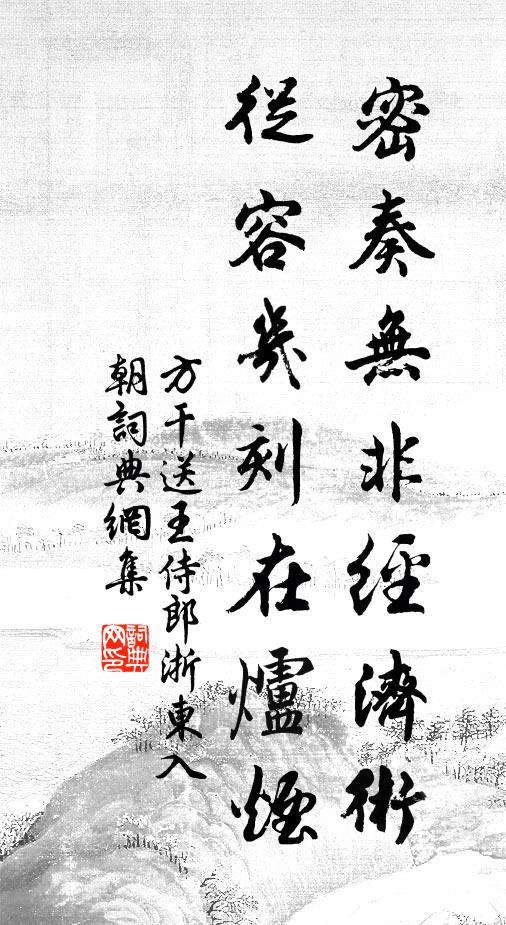 密奏無非經濟術
從容幾刻在爐煙
方干送王侍郎浙東入
朝詞典網集
詞典網印